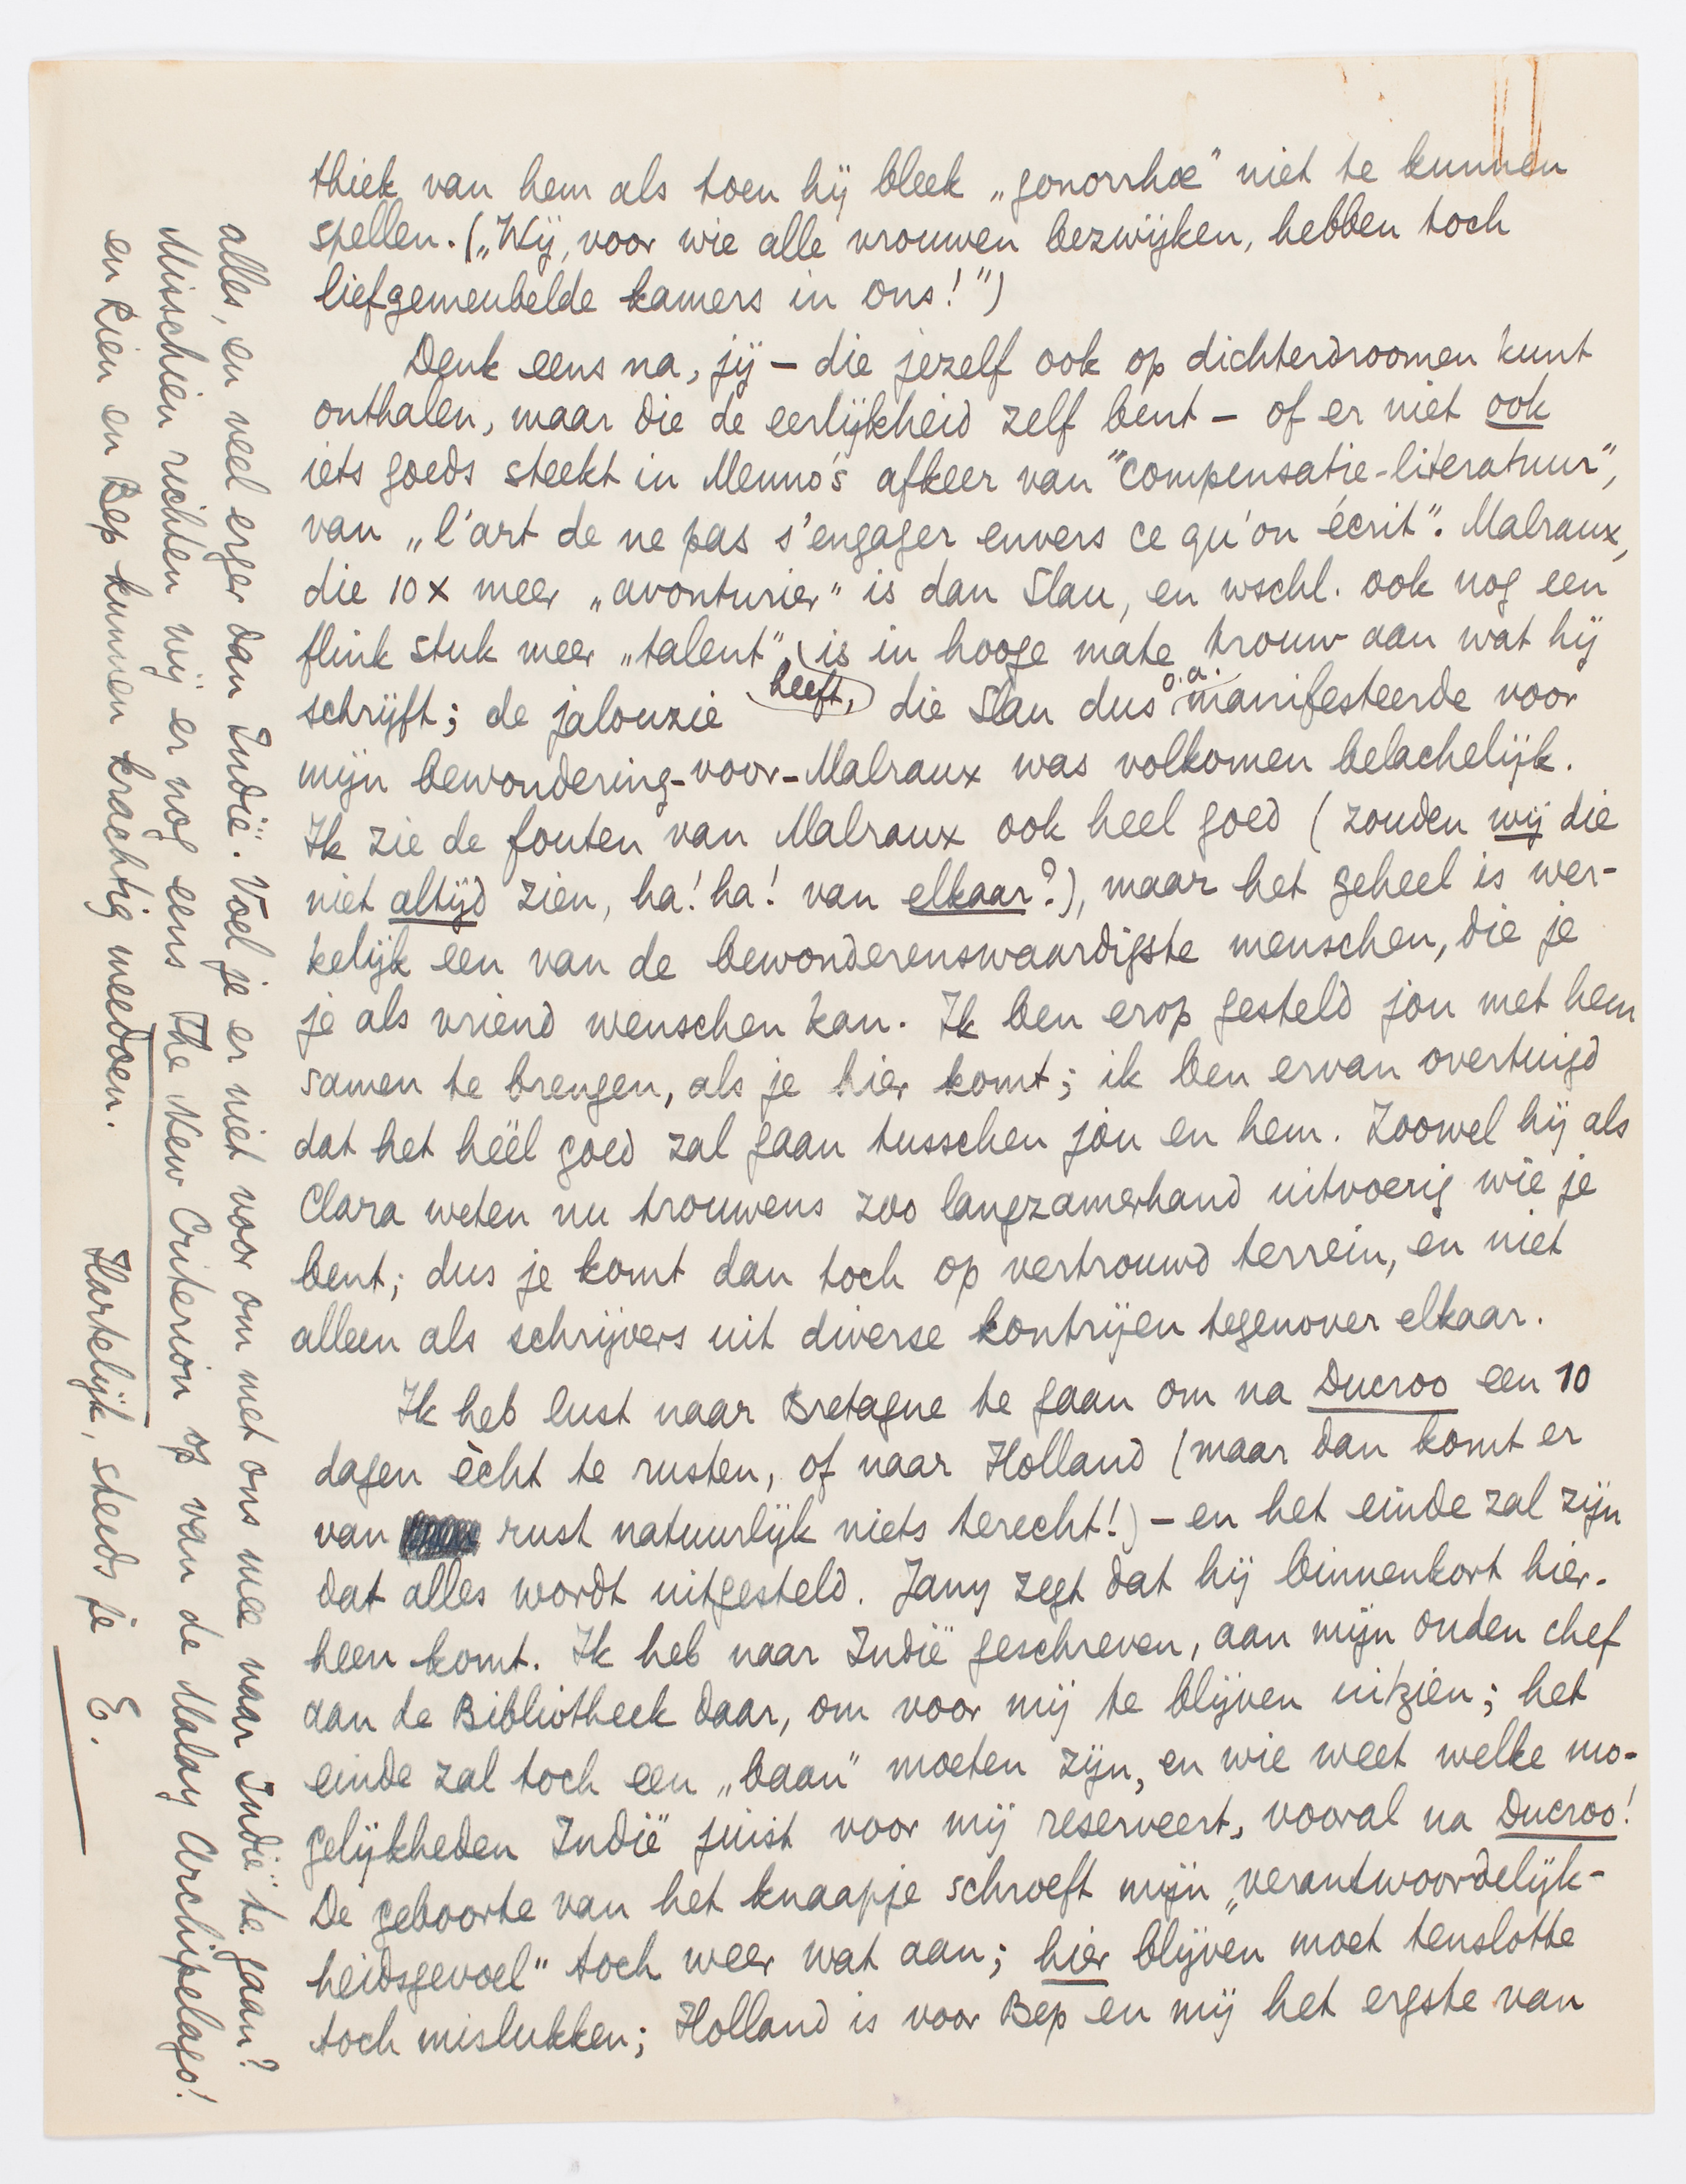 thiek van hem als toen hij bleek „gonorrhœ" niet te kunnen
spellen. („Wij, voor wie alle vrouwen bezwijken, hebben toch
liefgemeubelde kamers in ons!")
Denk eens na, jij – die jezelf ook op dichterdroomen kunt
onthalen, maar die de eerlijkheid zelf bent – of er niet ook
iets goeds steekt in Menno's afkeer van "compensatie-literatuur",
van „l'art de ne pas s'engager envers ce qu'on écrit". Malraux,
die 10 x meer „avonturier" is dan Slau, en wschl. ook nog een
flink stuk meer „talent" heeft, is in hooge mate trouw aan wat hij
schrijft; de jalouzie die Slau dus o.a. manifesteerde voor
mijn bewondering-voor-Malraux was volkomen belachelijk.
Ik zie de fouten van Malraux ook heel goed (zouden wij die
niet altijd zien, ha! ha! van elkaar?), maar het geheel is wer-
kelijk een van de bewonderenswaardigste menschen, die je
je als vriend wenschen kan. Ik ben erop gesteld jou met hem
samen te brengen, als je hier komt; ik ben ervan overtuigd
dat het héél goed zal gaan tusschen jou en hem. Zoowel hij als
Clara weten nu trouwens zoo langzamerhand uitvoerig wie je
bent; dus je komt dan toch op vertrouwd terrein, en niet
alleen als schrijvers uit diverse kontrijen tegenover elkaar.
Ik heb lust naar Bretagne te gaan om na Ducroo een 10
dagen ècht te rusten, of naar Holland (maar dan komt er
van rust natuurlijk niets terecht!) – en het einde zal zijn
dat alles wordt uitgesteld. Jany zegt dat hij binnenkort hier-
heen komt. Ik heb naar Indië geschreven, aan mijn ouden chef
aan de Bibliotheek daar, om voor mij te blijven uitzien; het
einde zal toch een „baan" moeten zijn, en wie weet welke mo-
gelijkheden Indië juist voor mij reserveert, vooral na Ducroo!
De geboorte van het knaapje schroeft mijn „verantwoordelijk-
heidsgevoel" toch weer wat aan; hier blijven moet tenslotte
toch mislukken; Holland is voor Bep en mij het ergste van
alles, en veel erger dan Indië. Voel je er niet voor om met ons mee naar Indië te gaan?
Misschien richten wij er nog eens The New Criterion op van de Malay Archipelago!
en Rien en Bep kunnen krachtig meedoen.
Hartelijk, steeds je E.